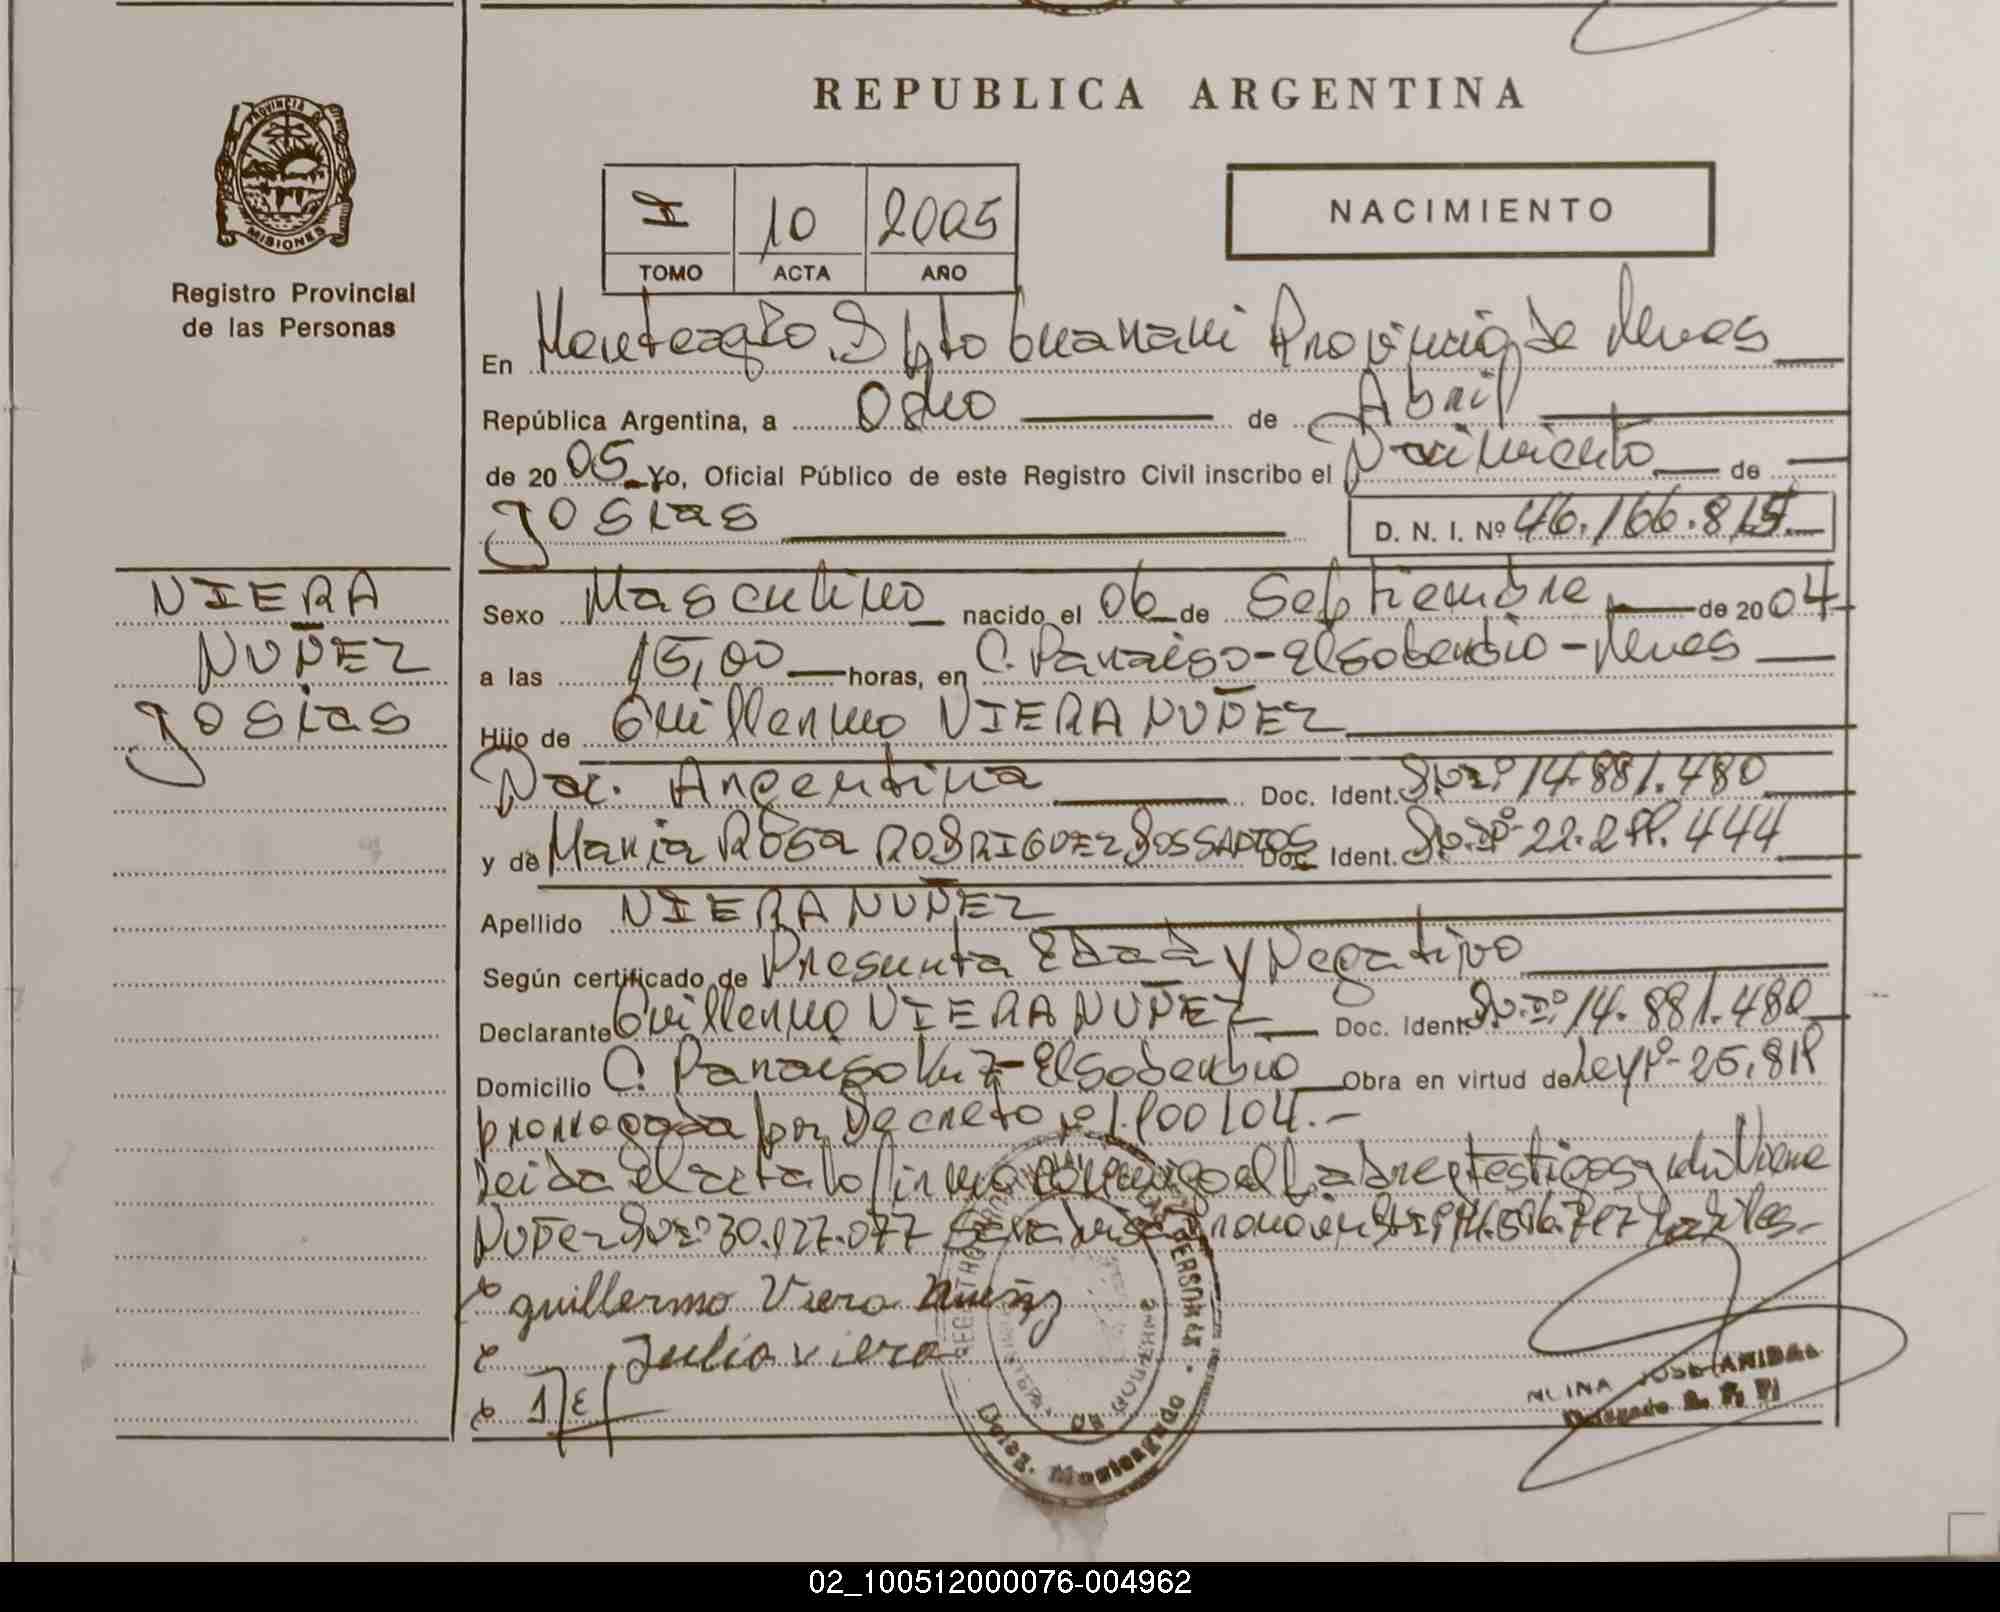 REPUBLICA ARGENTINA
PROVINCIA DE
MISIONES
Registro Provincial
de las Personas
I 10 2005
TOMO ACTA AÑO
NACIMIENTO
En Monteagudo Dpto Guarani Provincia de Mnes
República Argentina, a Ocho de Abril
de 2005 Yo, Oficial Público de este Registro Civil inscribo el Nacimiento de
Josias D. N. I. Nº 46.166.815
VIERA
NUÑEZ
Josias
Sexo Masculino nacido el 06 de Septiembre de 2004
a las 15,00 horas, en C. Paraiso - El soberbio - Mnes
Hijo de Guillermo VIERA NUÑEZ
Nac. Argentina Doc. Ident. DNIº 14.881.480
y de Maria Rosa RODRIGUEZ DOS SANTOS Doc. Ident. DNIº 22.299.444
Apellido VIERA NUÑEZ
Según certificado de Presunta Edad y Negativo
Declarante Guillermo VIERA NUÑEZ Doc. Ident. DNIº 14.881.480
Domicilio C. Paraiso - El soberbio Obra en virtud de Ley Nº 25.819
prorrogada por Decreto Nº 1.900/04.-
Leida el acta lo firma conmigo el Padre y testigos Julio Viera
Nuñez DNIº 30.127.077
guillermo Viera nuñez
Julio viera
JOSE ANIBAL
Delegado R. P. P.
REGISTRO PERSONAS
Deleg. Monteagudo
02_100512000076-004962